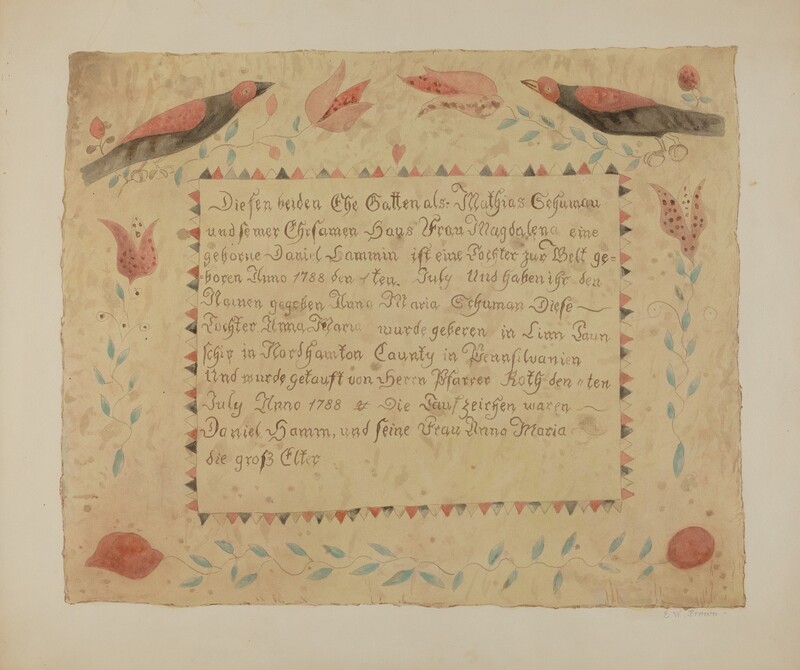 Diesen beiden Ehe Gatten als: Mathias Schuman
und seiner Ehrsamen Haus Frau Magdalena eine
geborne Daniel Hammin ist eine Tochter zur Welt ge=
boren Anno 1788 den ten. July Und haben ihr den
Namen gegeben Anna Maria Schuman Diese
Tochter Anna Maria wurde geberen in Linn Taun
schip in Nordhamton Caunty in Pennsilvanien
Und wurde getauft von Herrn Pfarrer Roth den ten
July Anno 1788 & Die Taufzeichen waren
Daniel Hamm, und seine Frau Anna Maria
die groß Elter